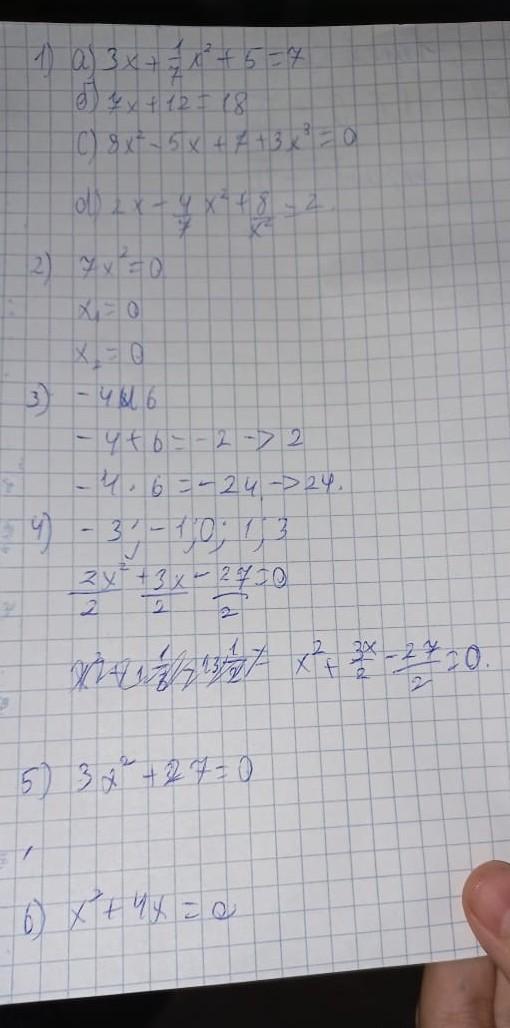 1) a) 3x + 1/7 x² + 5 = 7
б) 7x + 12 = 18
c) 8x² - 5x + 7 + 3x³ = 0
d) 2x - 4/7 x² + 8/x² = 2
2) 7x² = 0
x₁ = 0
x₂ = 0
3) -4 и 6
-4 + 6 = -2 -> 2
-4 · 6 = -24 -> 24.
4) -3; -1; 0; 1; 3
2x²/2 + 3x/2 - 27/2 = 0
x² + 3x/2 - 27/2 = 0.
5) 3x² + 27 = 0
6) x² + 4x = 0